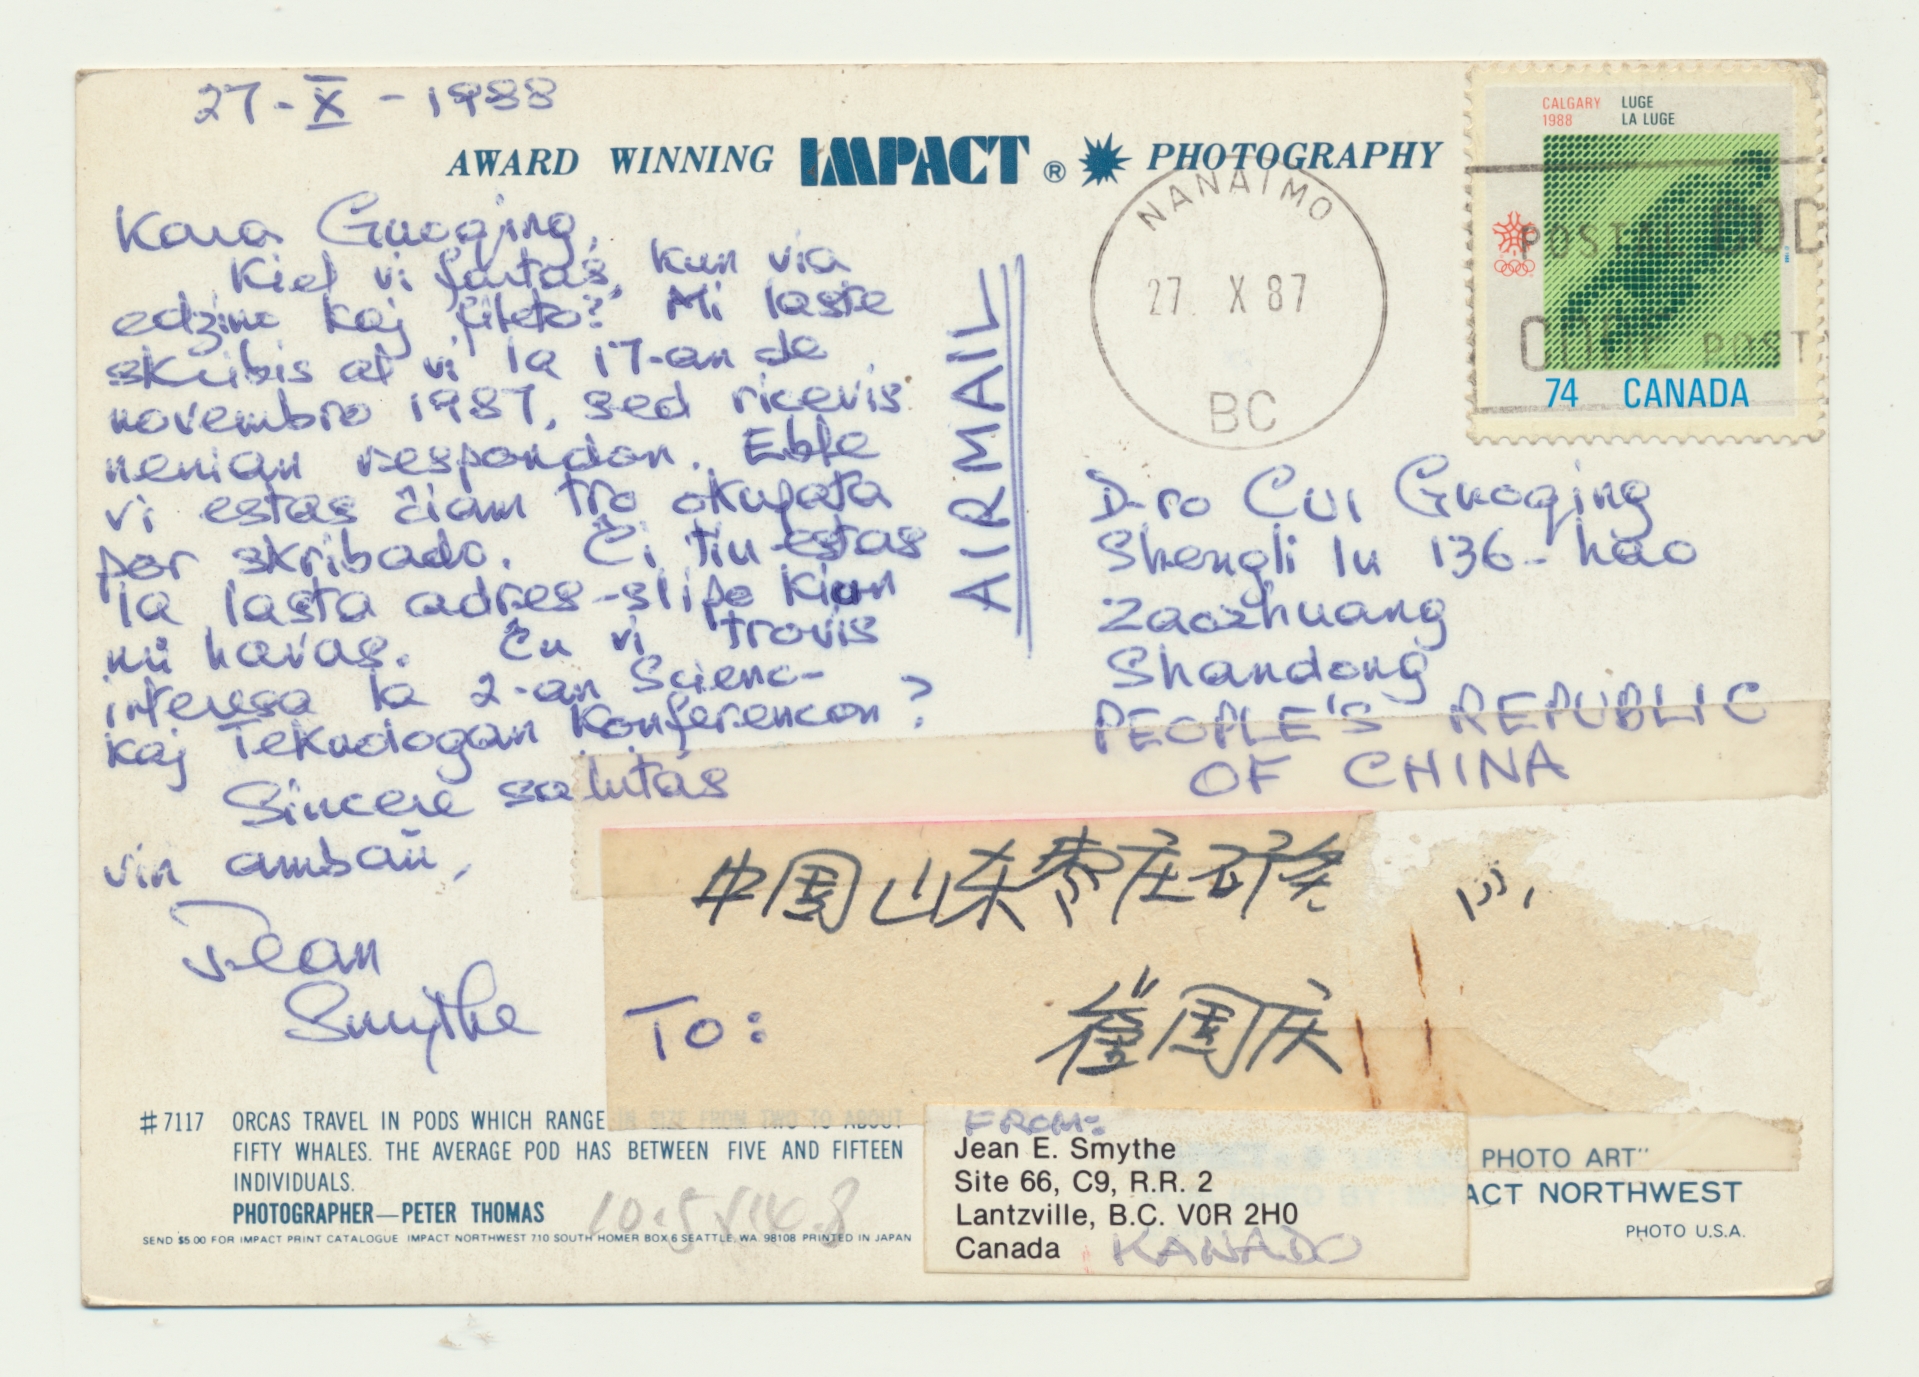 27-X-1988
AWARD WINNING IMPACT ® PHOTOGRAPHY
Kara Guoqing,
Kiel vi fartas, kun via
edzino kaj fileto? Mi laste
skribis al vi la 17-an de
novembro 1987, sed ricevis
nenian respondon. Eble
vi estas ĉiam tro okupata
por skribado. Ĉi tiu estas
la lasta adres-slipo kiun
mi havas. Ĉu vi trovis
interesa la 2-an Scienc-
kaj Teknologan Konferencon?
Sincere salutas
vin ambaŭ,
Jean
Smythe
AIRMAIL
NANAIMO
27 X 87
BC
CALGARY
1988
LUGE
LA LUGE
POSTAL CODE
CODE POSTAL
74 CANADA
D-ro Cui Guoqing
Shengli lu 136-hao
Zaozhuang
Shandong
PEOPLE'S REPUBLIC
OF CHINA
中国山东枣庄矿务
To: 崔国庆
#7117 ORCAS TRAVEL IN PODS WHICH RANGE IN SIZE FROM TWO TO ABOUT
FIFTY WHALES. THE AVERAGE POD HAS BETWEEN FIVE AND FIFTEEN
INDIVIDUALS.
PHOTOGRAPHER—PETER THOMAS
SEND $5.00 FOR IMPACT PRINT CATALOGUE IMPACT NORTHWEST 710 SOUTH HOMER BOX 6 SEATTLE, WA. 98108 PRINTED IN JAPAN
10.5×14.8
FROM:
Jean E. Smythe
Site 66, C9, R.R. 2
Lantzville, B.C. V0R 2H0
Canada KANADO
PHOTO ART"
ACT NORTHWEST
PHOTO U.S.A.